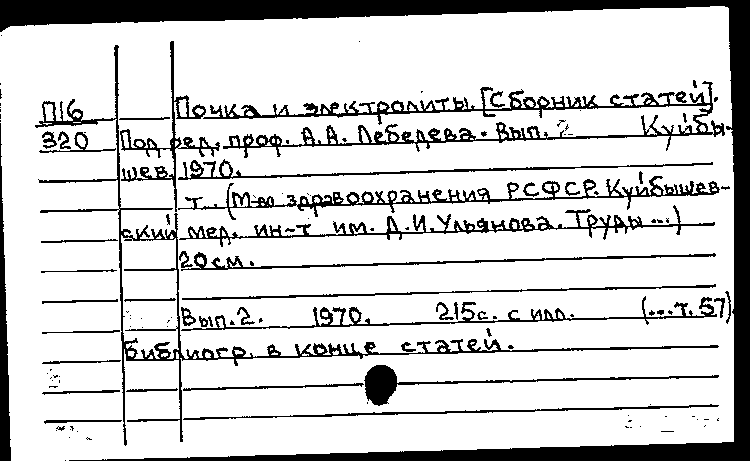 П16 Почка и электролиты. [Сборник статей].
320 Под ред. проф. А.А. Лебедева. Вып. 2 Куйбы-
шев, 1970.
т. (М-во здравоохранения РСФСР. Куйбышев-
ский мед. ин-т им. Д.И. Ульянова. Труды ...)
20 см.
Вып. 2. 1970. 215с. с илл. (...т. 57).
Библиогр. в конце статей.